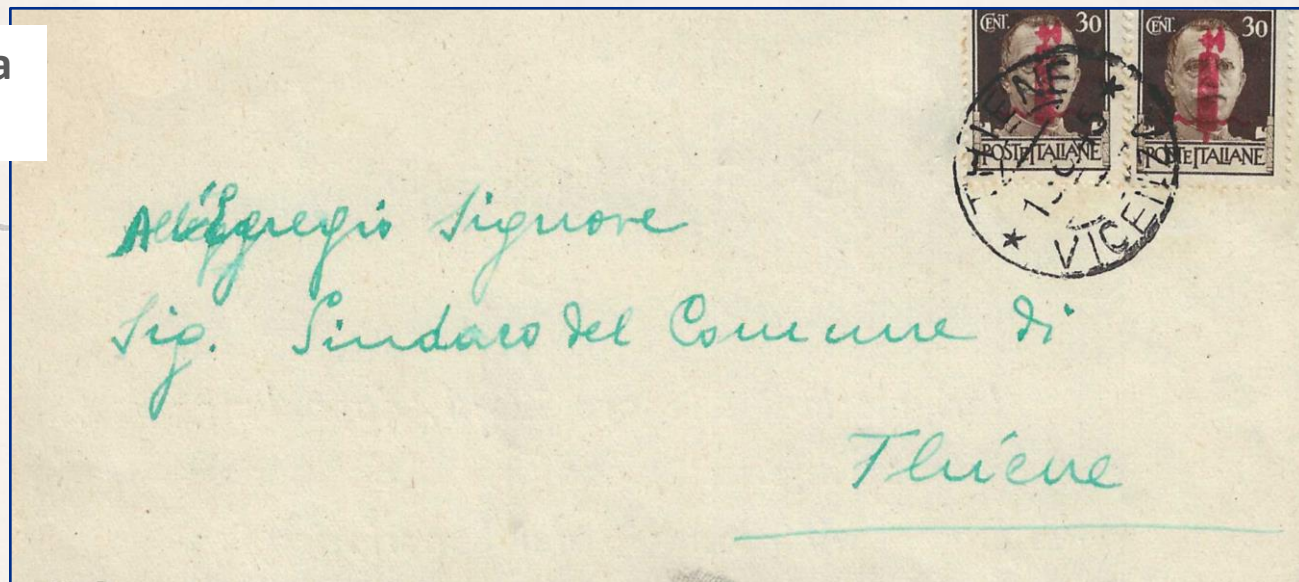 a
CENT. 30
CENT. 30
POSTE ITALIANE
POSTE ITALIANE
THIENE
VICENZA
All'Egregio Signore
Sig. Sindaco del Comune di
Thiene